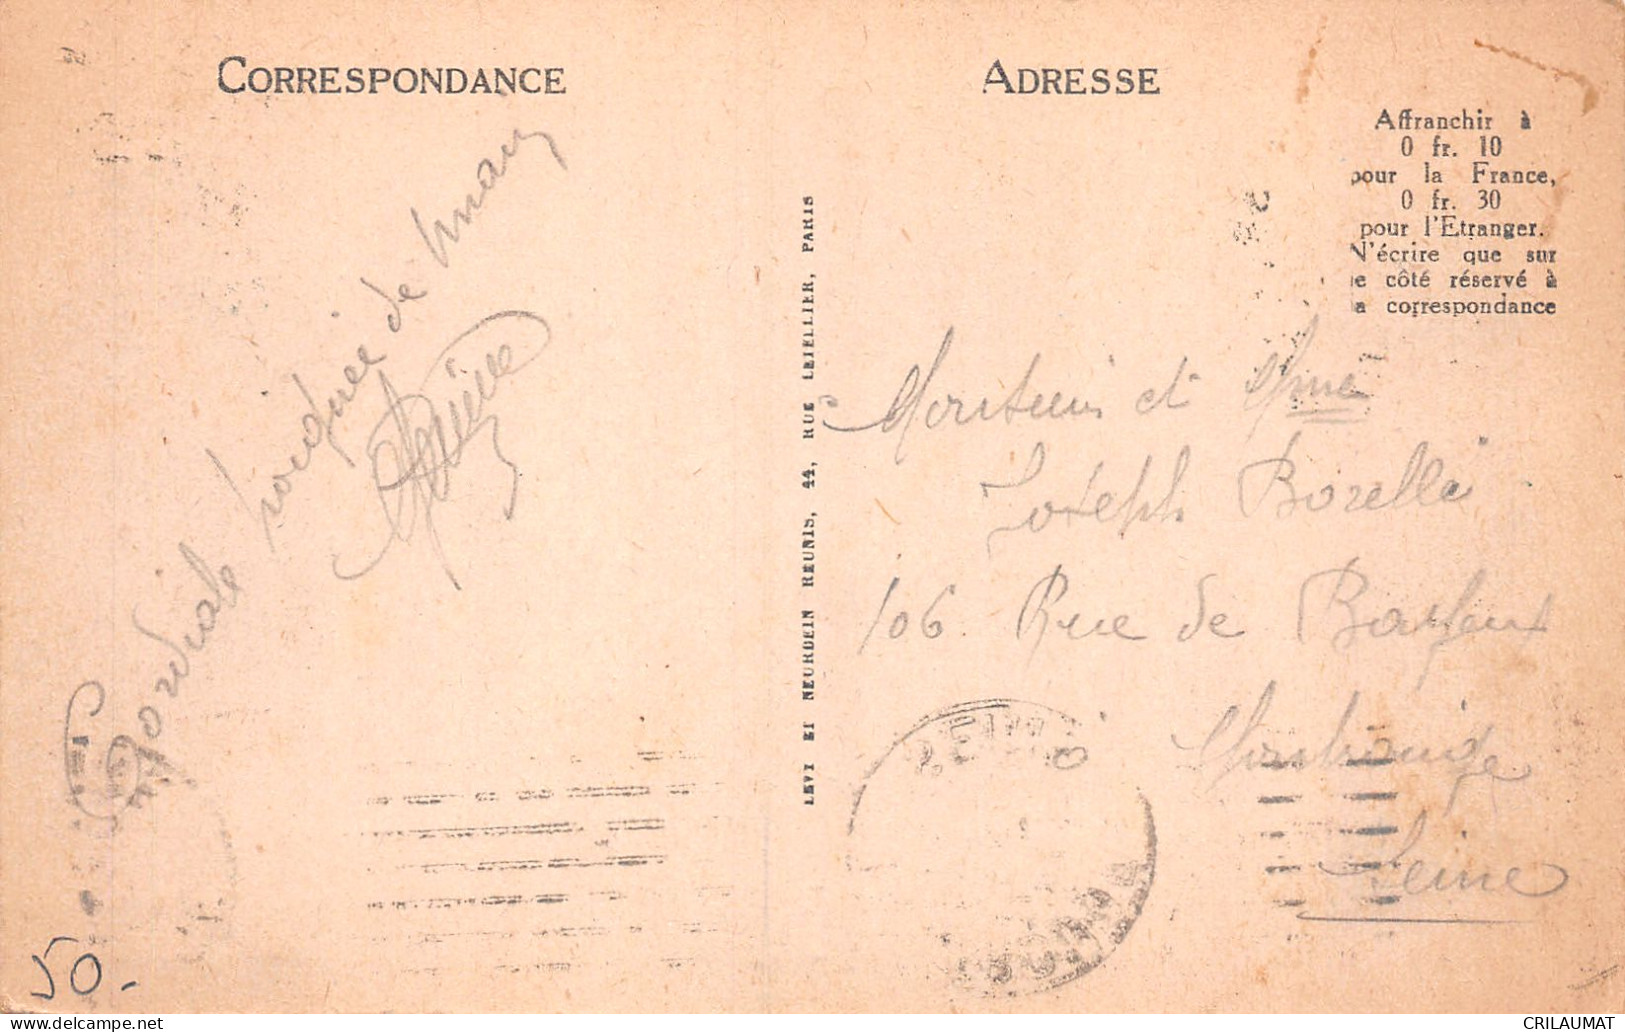 CORRESPONDANCE
ADRESSE
Affranchir à
0 fr. 10
pour la France,
0 fr. 30
pour l'Etranger.
N'écrire que sur
le côté réservé à
la correspondance
LEVY ET NEURDEIN REUNIS, 44, RUE LETELLIER, PARIS
Cordiale poignée de main
Monsieur et Mme
Joseph Borelli
106 Rue de
Montrouge
Seine
50.-
CRILAUMAT